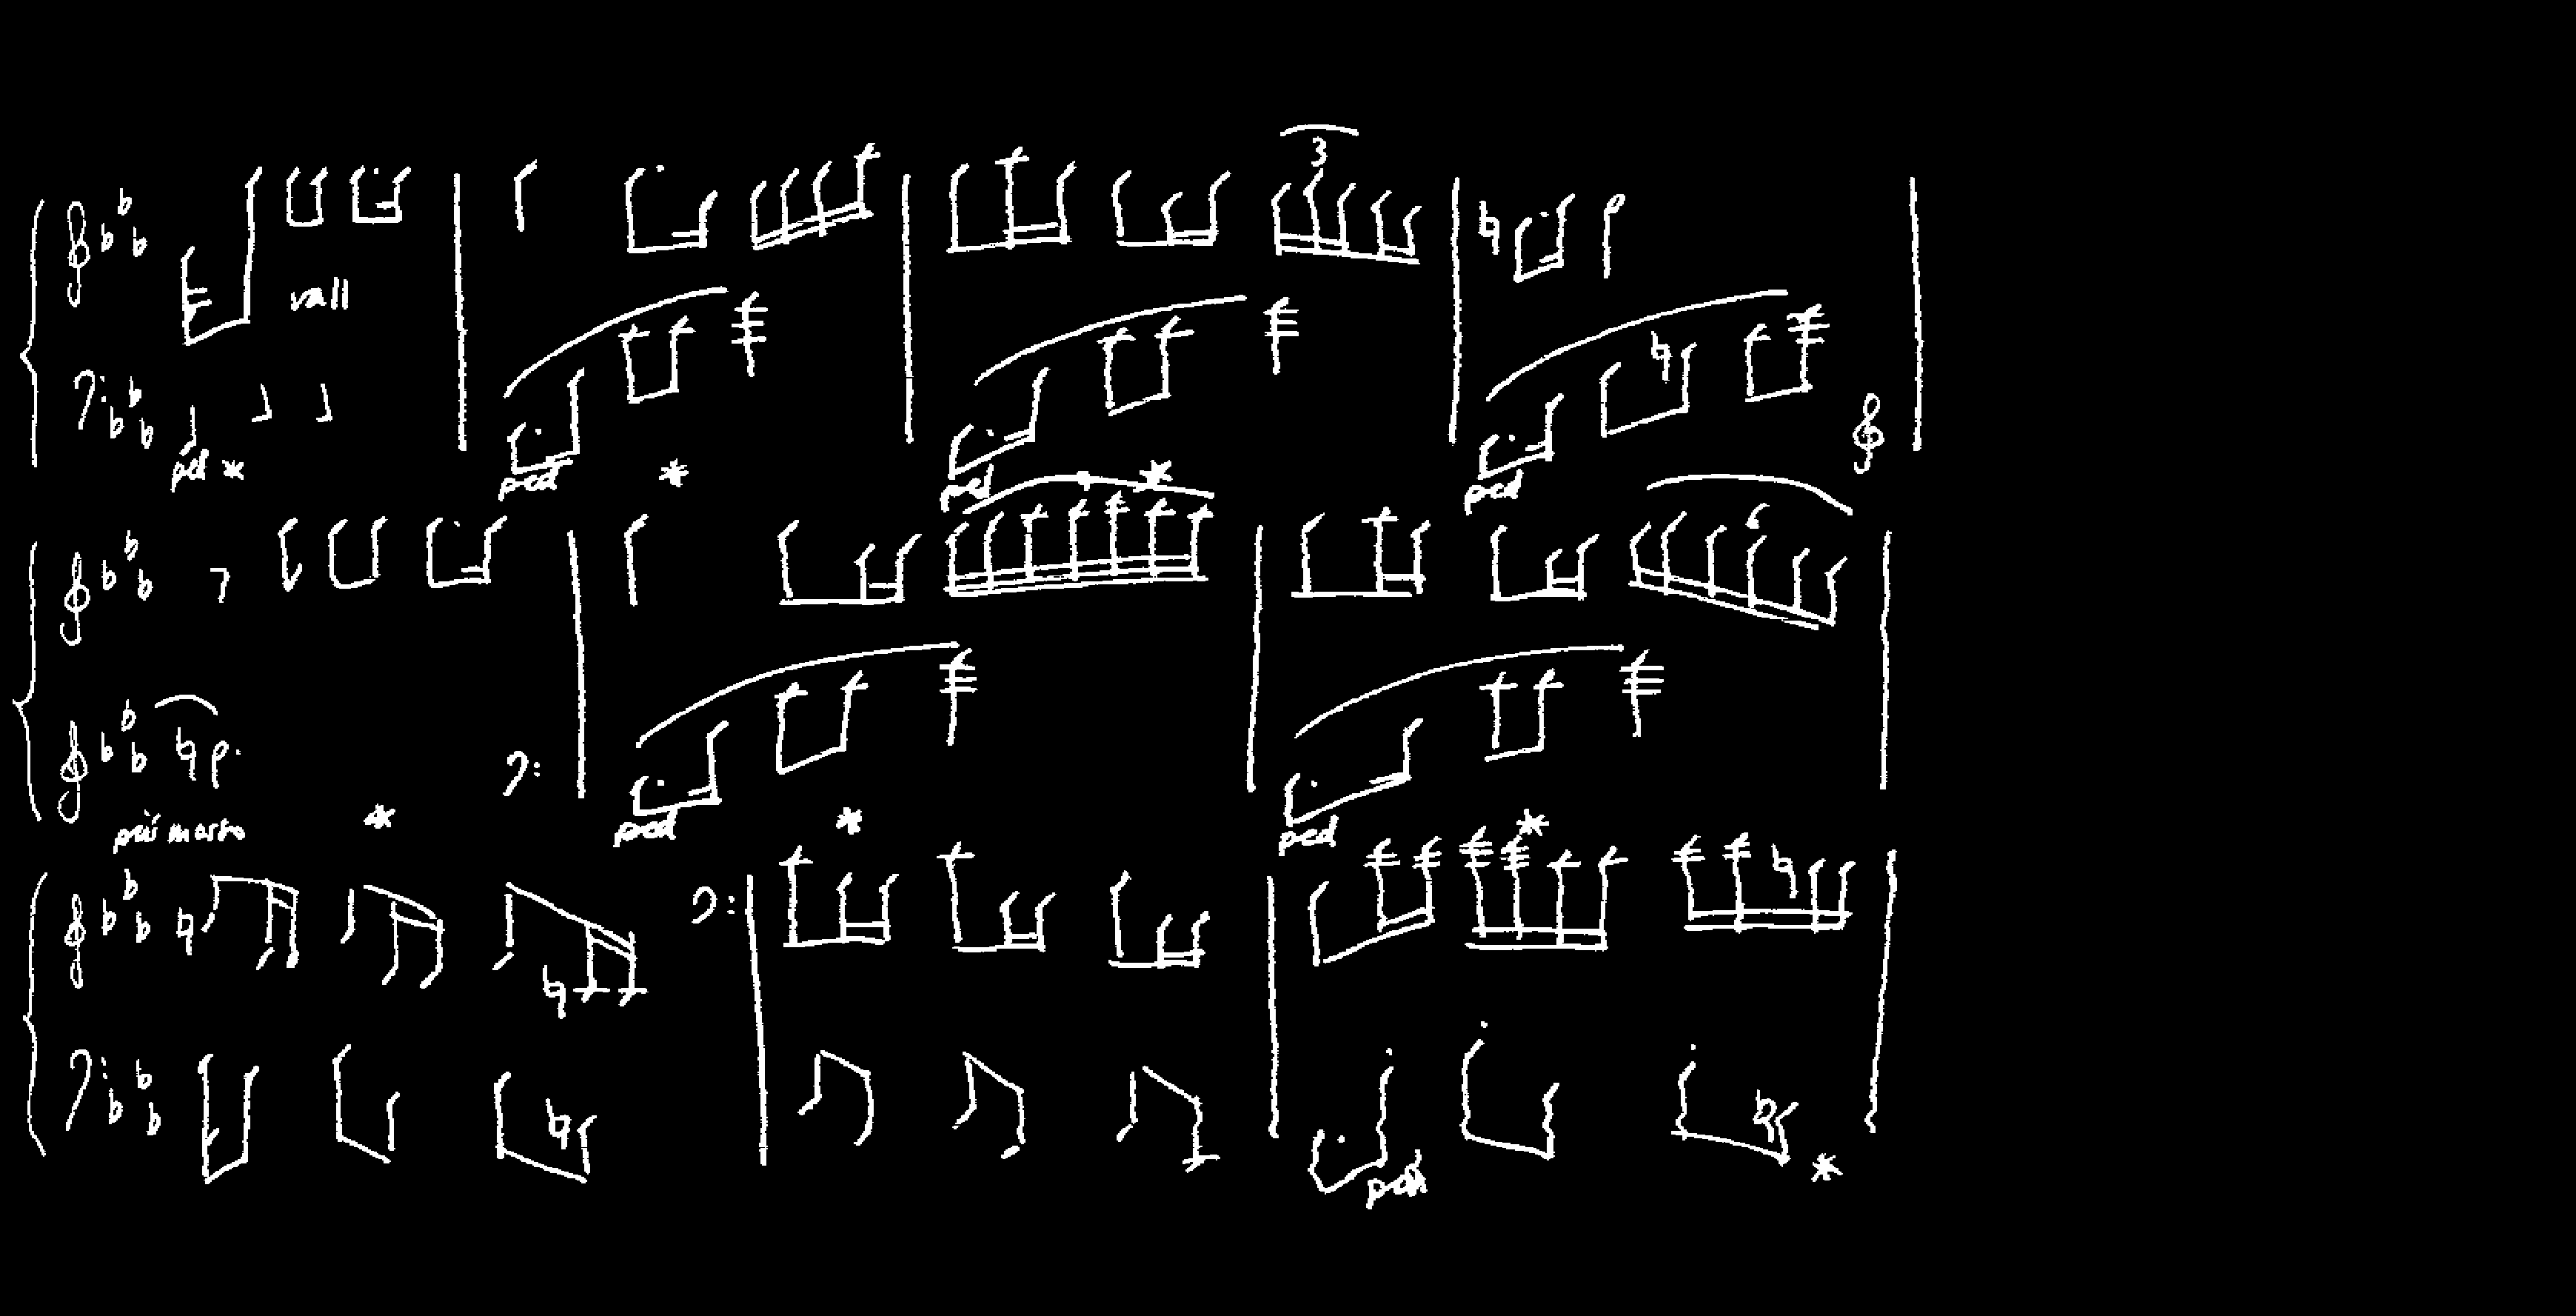 3
rall
ped *
ped * ped * ped
6
piú mosso *
ped * ped *
ped *